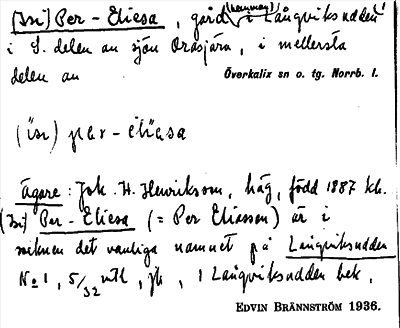 [Isi] Per-Eliesa, gård (hemman) i Långviksudden
i S. delen av sjön Orasjärv, i mellersta
delen av Överkalix sn o. tg. Norrb. l.
(isi) pær-eliesa
Ägare: Joh. H. Henriksson, häg, född 1887 kk.
(Isi) Per-Eliesa (= Per Eliasson) är i
socknen det vanliga namnet på Långviksudden
No 1, 5/32 mtl, jb, i Långviksudden bek.
EDVIN BRÄNNSTRÖM 1936.